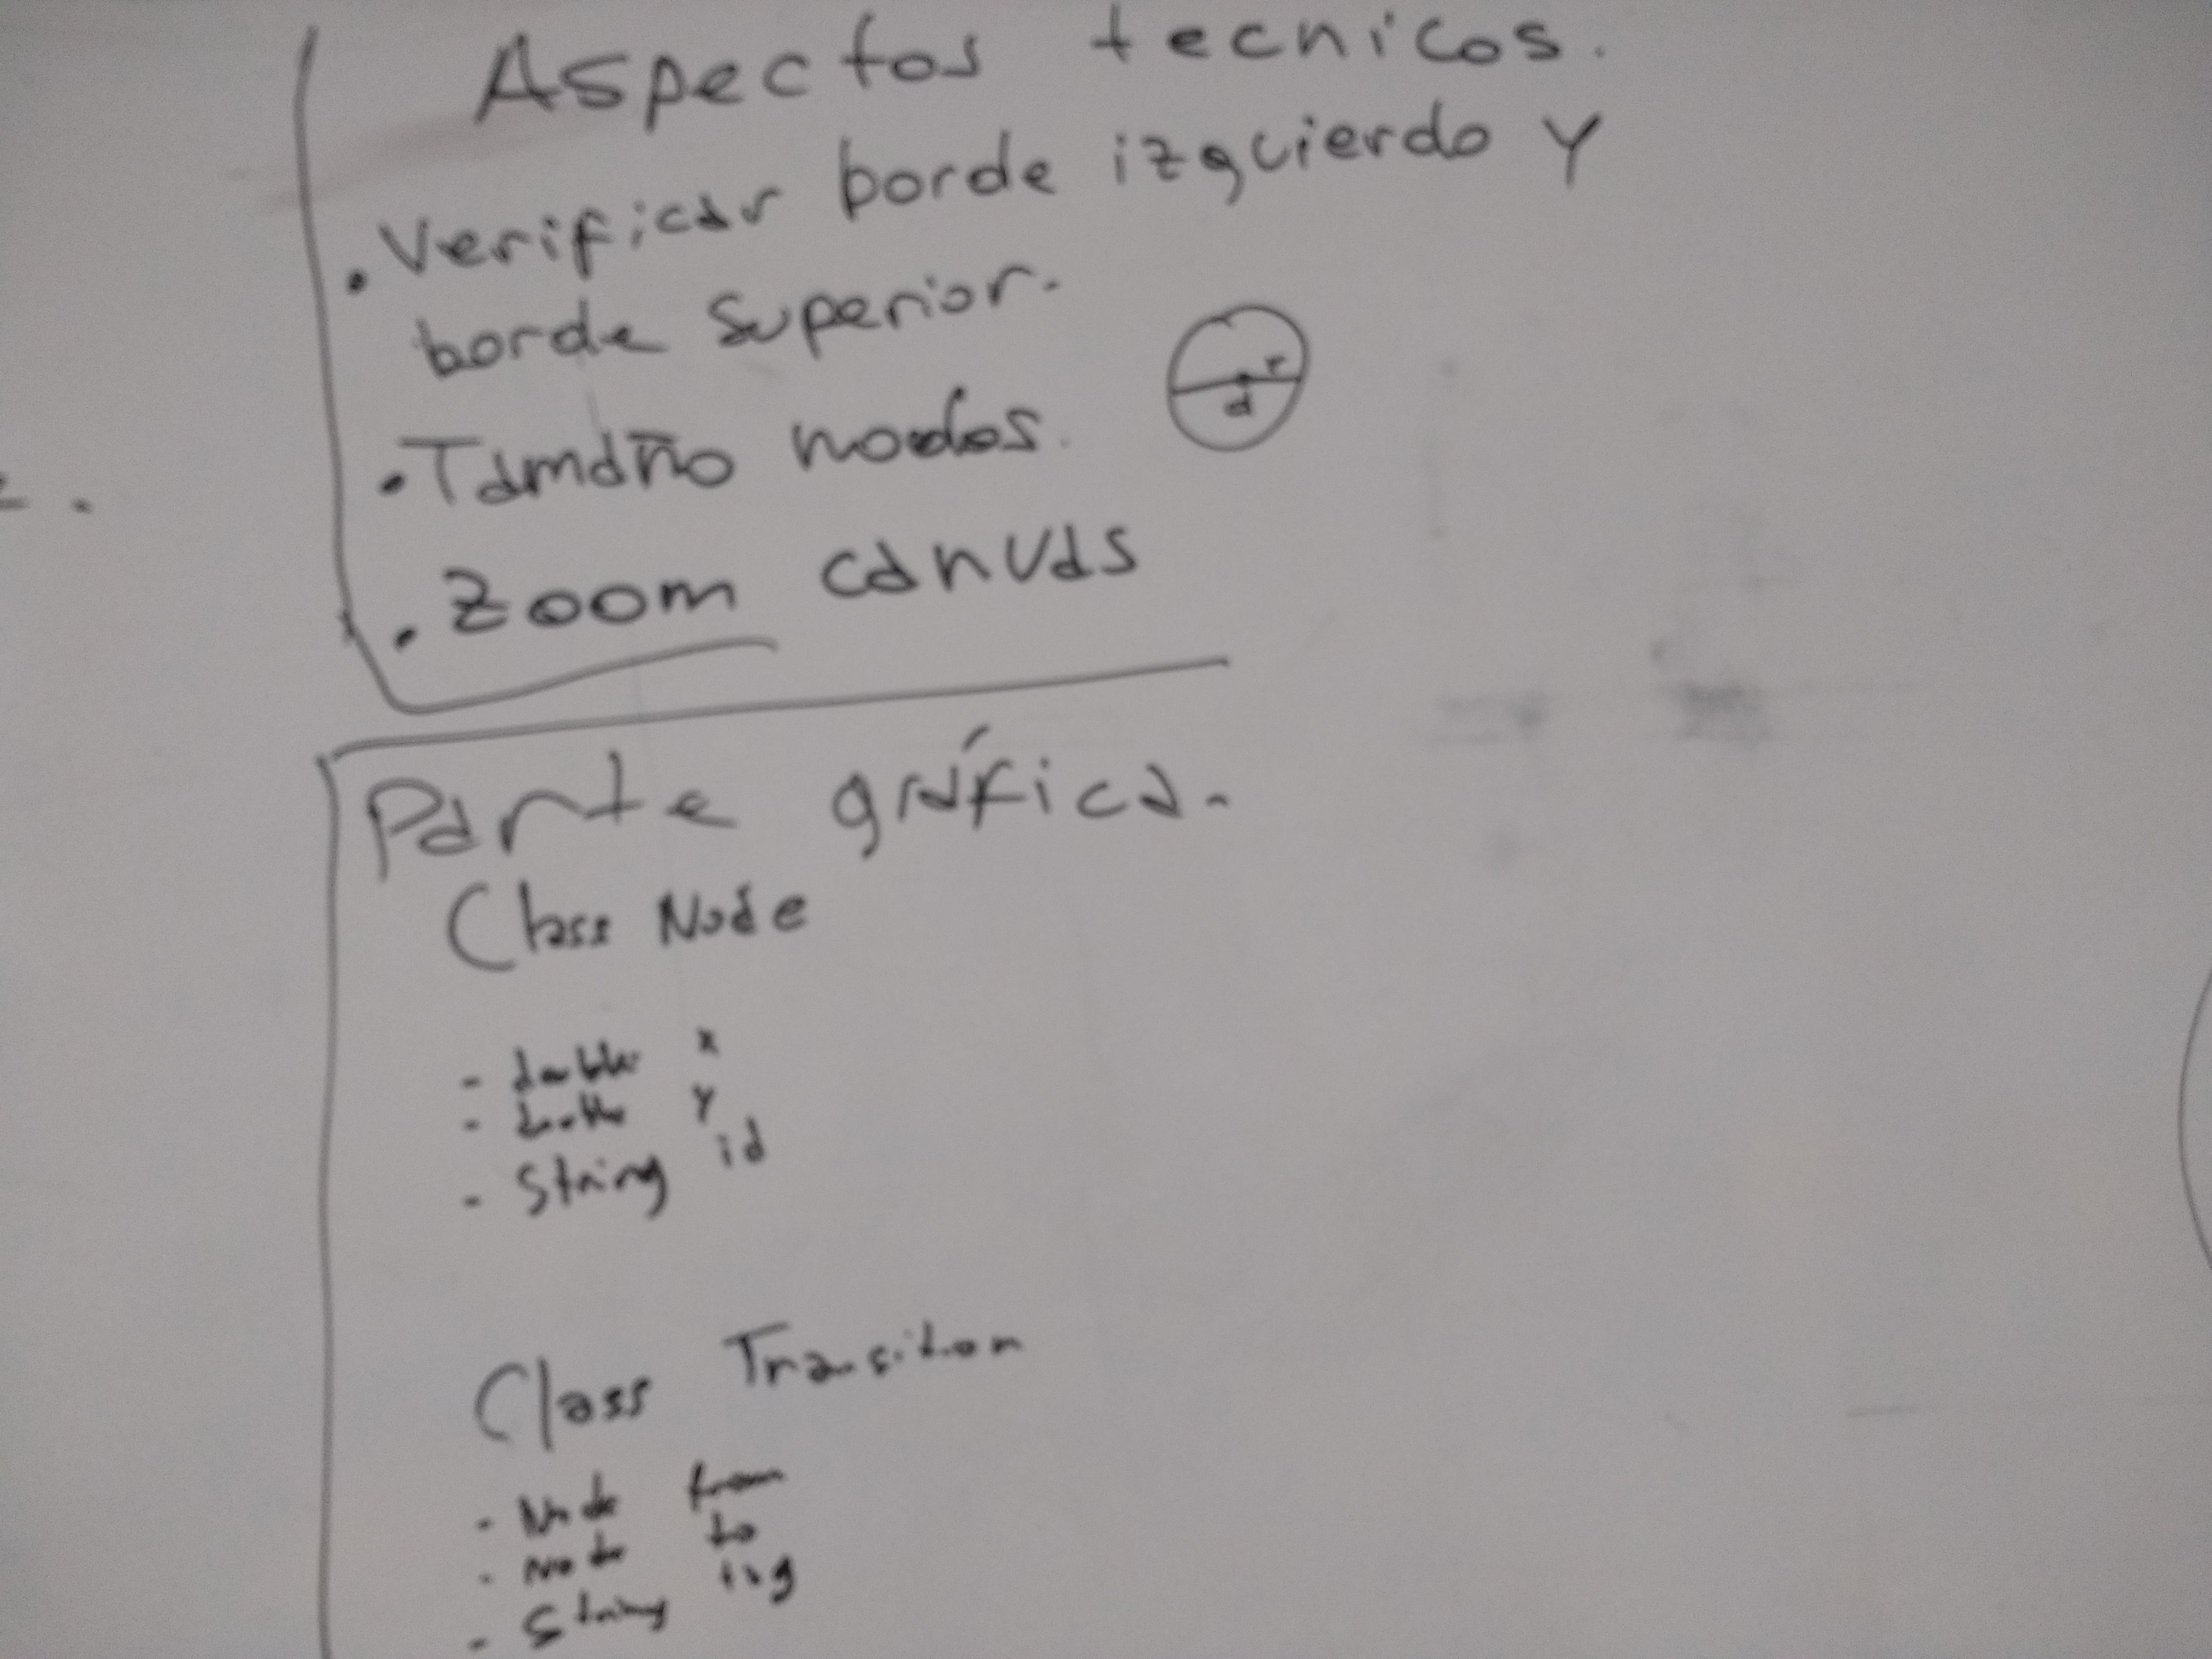 Aspectos tecnicos.
. Verificar borde izquierdo y
borde superior.
r
d
. Tamaño nodos.
. Zoom canvas
Parte gráfica.
Class Node
- double x
- double y
- String id
Class Transition
- Node from
- Node to
- String